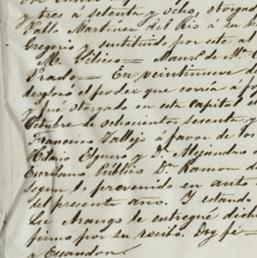 y tres á setenta y ocho, otorgad
Pablo Martinez del Rio á su h
Gregorio y sustituido por este al
M. Silicio — Maur. de M.
Prado — En veintinueve d
desglosó el poder que corria á fo
y qué otorgado en esta capital e
Octubre de ochocientos sesenta y
Francisco Vallejo á favor de los
Hilario Elguero y D. Alejandro
Escribano Público D. Ramon d
segun lo prevenido en auto
del presente año. Y estando
Ler Arango le entregué dich
firmó por su recibo. Doy fé —
Escandon